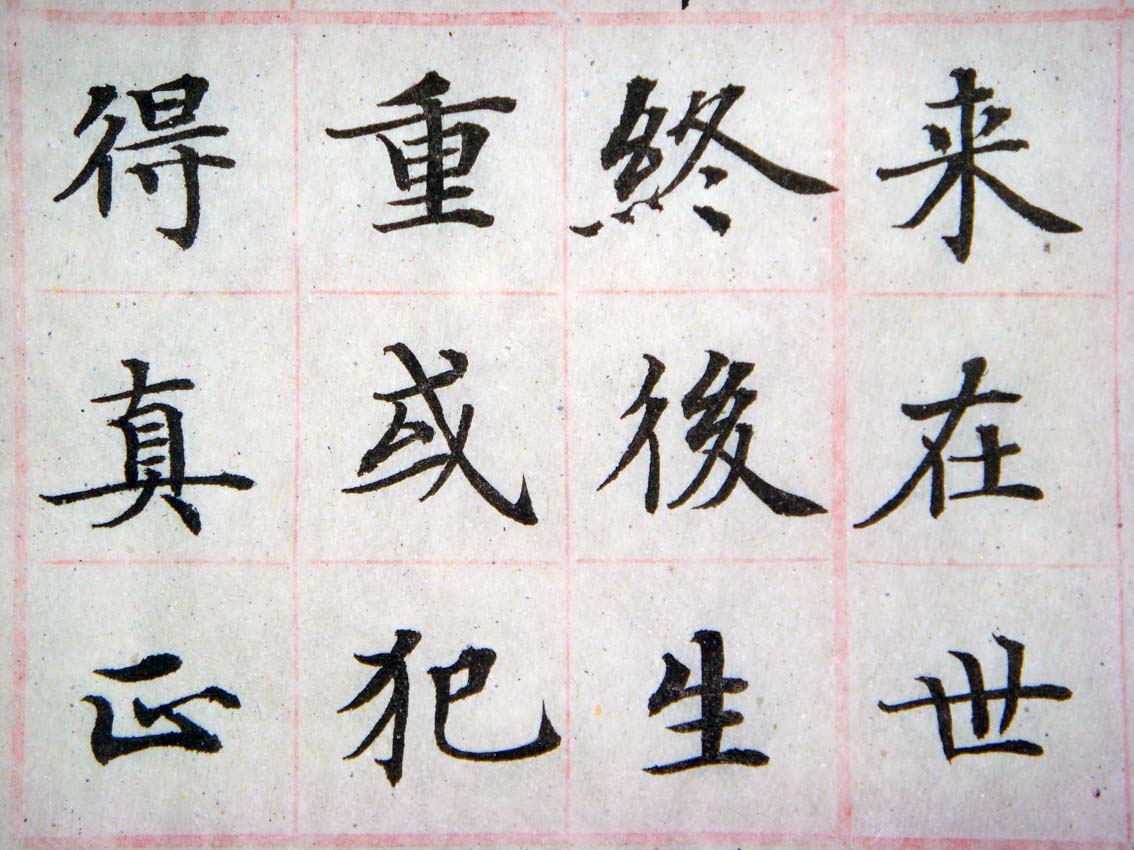 来在世
終後生
重或犯
得真正